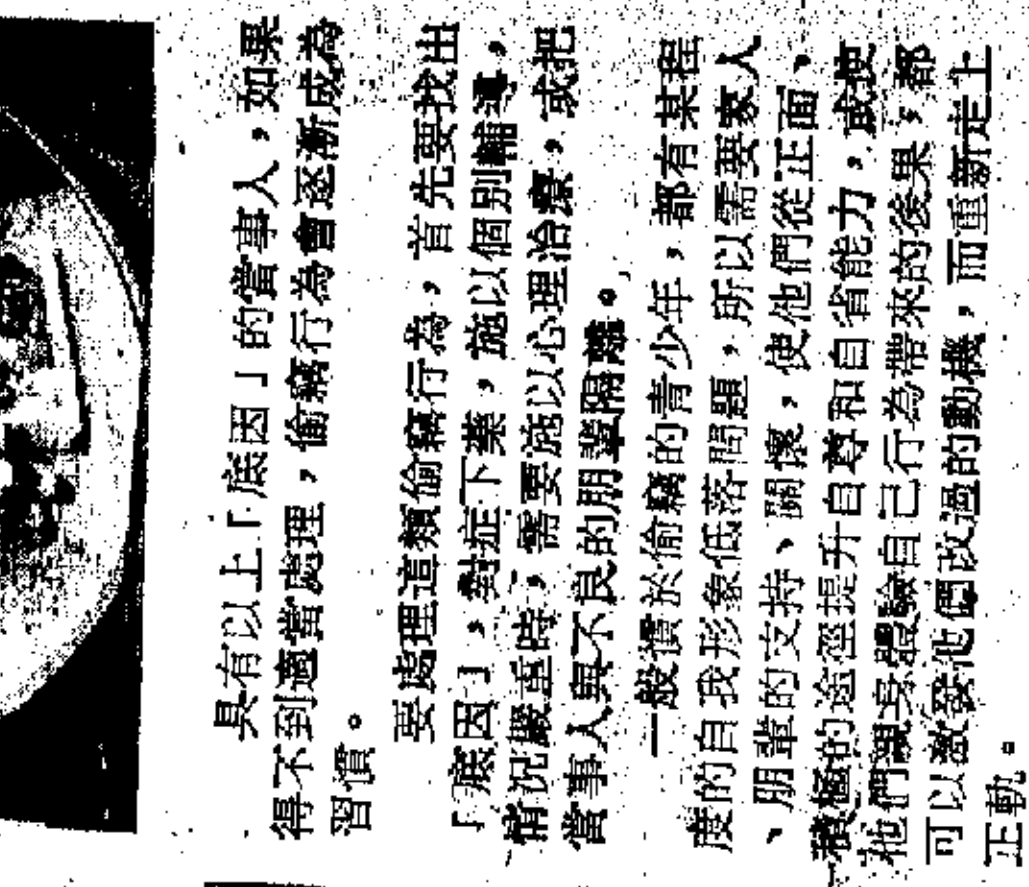 具有以上「底因」的當事人，如果
得不到適當處理，偷竊行為會逐漸成為
習慣。
要處理這類偷竊行為，首先要找出
「底因」，對症下藥，施以個別輔導，
情況嚴重時，需要施以心理治療，或把
當事人與不良的朋輩隔離。
一般慣於偷竊的青少年，都有某程
度的自我形象低落問題，所以需要家人
、朋輩的支持、關懷，使他們從正面、
積極的途徑提升自尊和自省能力，或使
他們親身體驗自己行為帶來的後果，都
可以激發他們改過的動機，而重新走上
正軌。